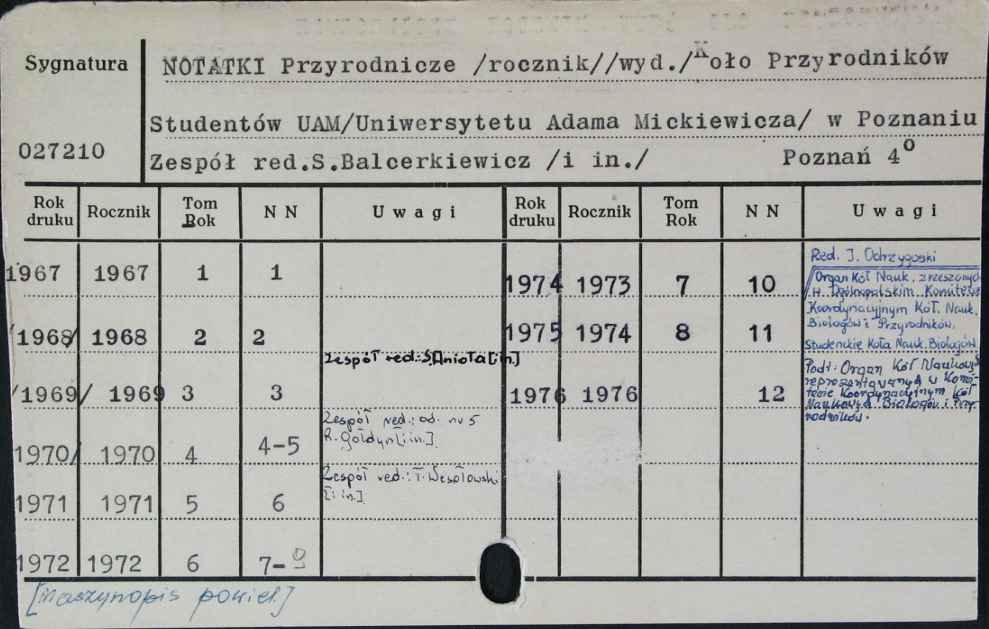 Sygnatura NOTATKI Przyrodnicze /rocznik//wyd./Koło Przyrodników
Studentów UAM/Uniwersytetu Adama Mickiewicza/ w Poznaniu
027210 Zespół red.S.Balcerkiewicz /i in./ Poznań 4°
Rok druku Rocznik Tom Rok N N Uwagi Rok druku Rocznik Tom Rok N N Uwagi
1967 1967 1 1
/1968/ 1968 2 2
Zespół red.:S.Anioła[i in.]
/1969/ 1969 3 3
Zespół red.: od nr 5
R. Gołdyn [i in.]
/1970/ 1970 4 4-5
Zespół red.: T. Wesołowski
[i in.]
1971 1971 5 6
1972 1972 6 7-9
Red. J. Odrzygoski
1974 1973 7 10
Organ Kół Nauk. zrzeszonych
w Ogólnopolskim Komitecie
Koordynacyjnym Kół. Nauk.
Biologów i Przyrodników.
1975 1974 8 11
Studenckie Koła Nauk. Biologów
1976 1976 12
Podt: Organ Kół Naukowych
reprezentowanych w Komi-
tecie Koordynacyjnym Kół
Naukowych Biologów i Przy-
rodników.
[Maszynopis powiel.]